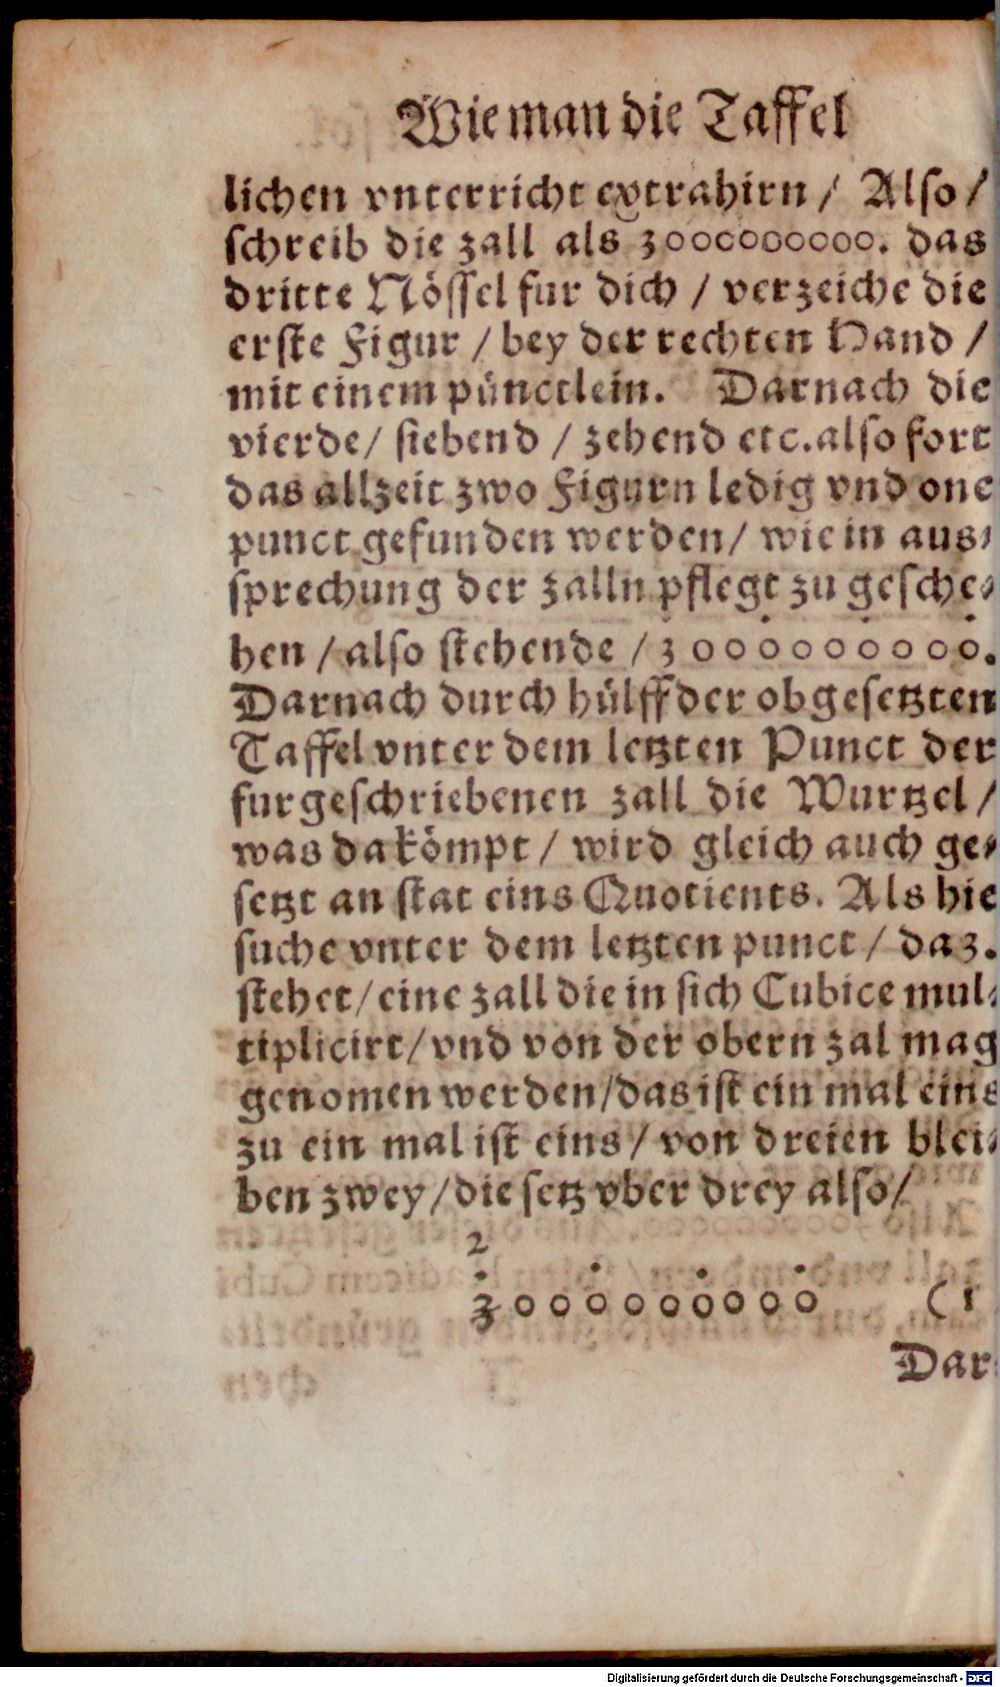 Wie man die Taffel
lichen vnterricht extrahirn / Also /
schreib die zall als 3000000000. das
dritte Nössel fur dich / verzeiche die
erste Figur / bey der rechten Hand /
mit einem pünctlein. Darnach die
vierde / siebend / zehend etc. also fort
das allzeit zwo Figurn ledig vnd one
punct gefunden werden / wie in aus⸗
sprechung der zalln pflegt zu gesche⸗
hen / also stehende / 3000000000.
Darnach durch hülff der obgesetzten
Taffel vnter dem letzten Punct der
furgeschriebenen zall die Wurtzel /
was da kömpt / wird gleich auch ge⸗
setzt an stat eins Quotients. Als hie
suche vnter dem letzten punct / da 3.
stehet / eine zall die in sich Cubice mul⸗
tiplicirt / vnd von der obern zal mag
genomen werden / das ist ein mal eins
zu ein mal ist eins / von dreien blei⸗
ben zwey / die setz vber drey also /
2
3000000000 (1
Dar⸗
Digitalisierung gefördert durch die Deutsche Forschungsgemeinschaft - DFG